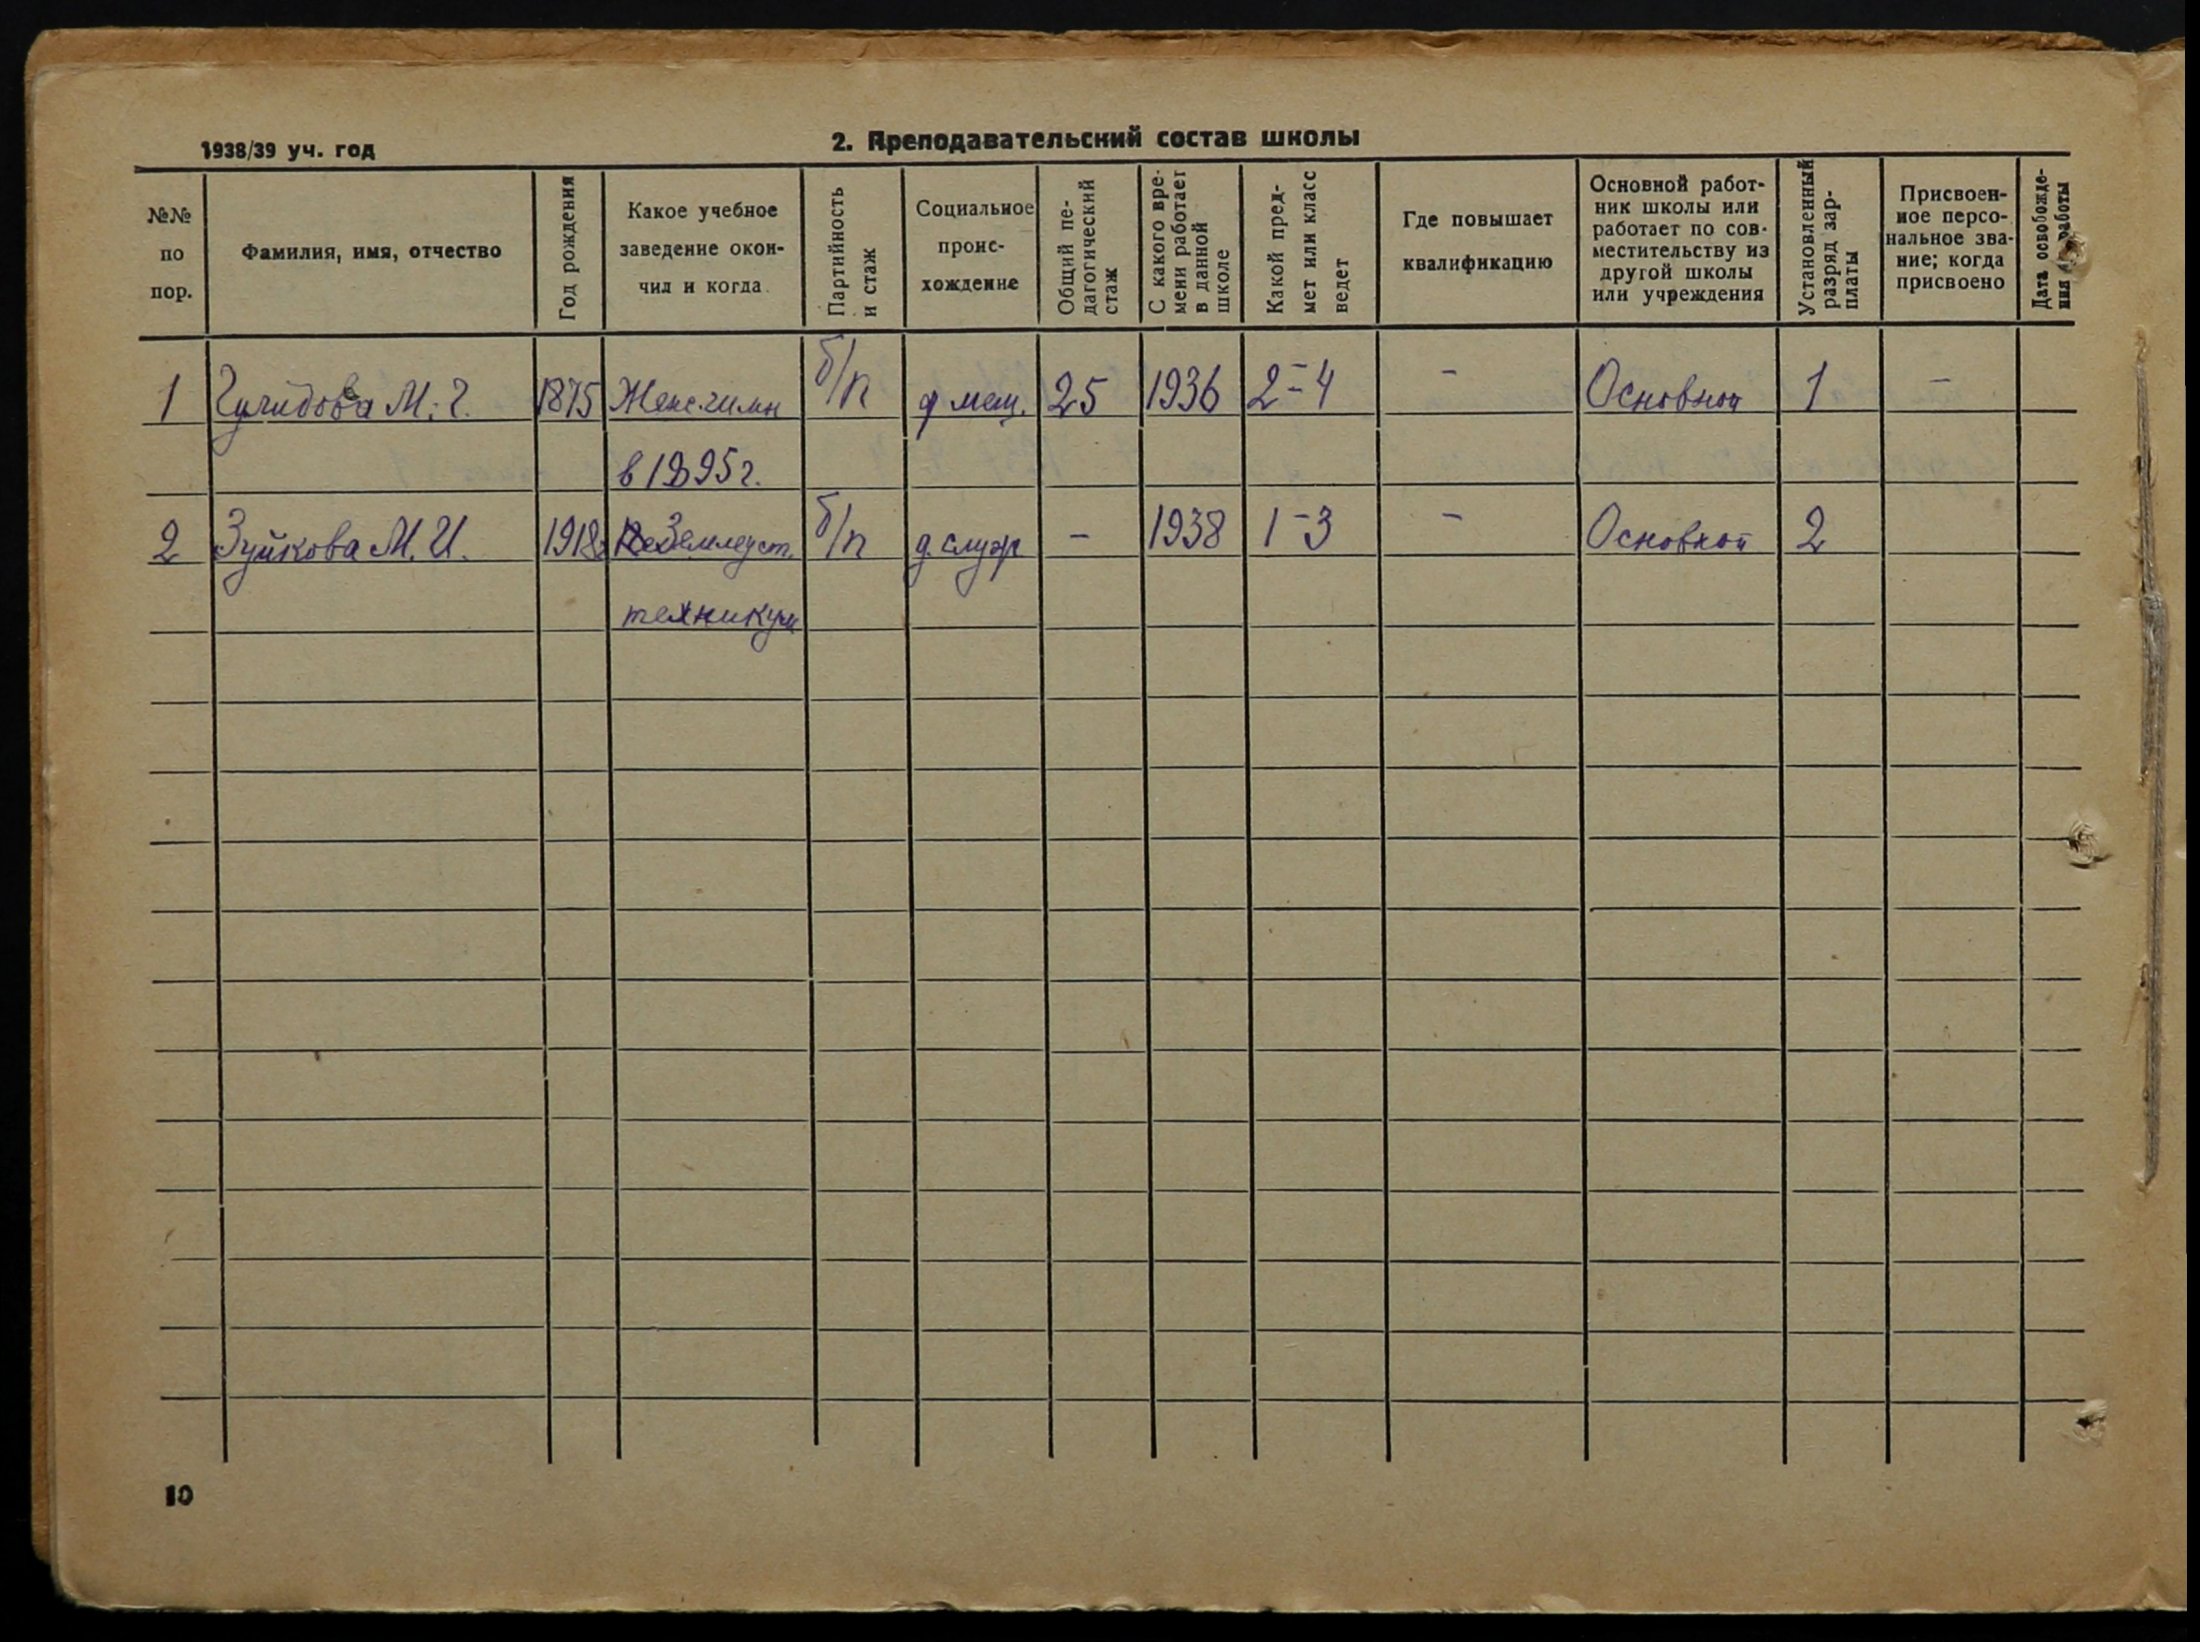 1938/39 уч. год
2. Преподавательский состав школы
№№ по пор.
Фамилия, имя, отчество
Год рождения
Какое учебное заведение окончил и когда
Партийность и стаж
Социальное происхождение
Общий педагогический стаж
С какого времени работает в данной школе
Какой предмет или класс ведет
Где повышает квалификацию
Основной работник школы или работает по совместительству из другой школы или учреждения
Установленный разряд зарплаты
Присвоенное персональное звание; когда присвоено
Дата освобождения работы
1 М. Г. 1875 Женс. гимн б/п д мещ. 25 1936 2 - 4 - Основной 1 -
в 1895 г.
2 Зуйкова М. И. 1918 Землеуст. б/п д. служ - 1938 1 - 3 - Основной 2
техникум
10